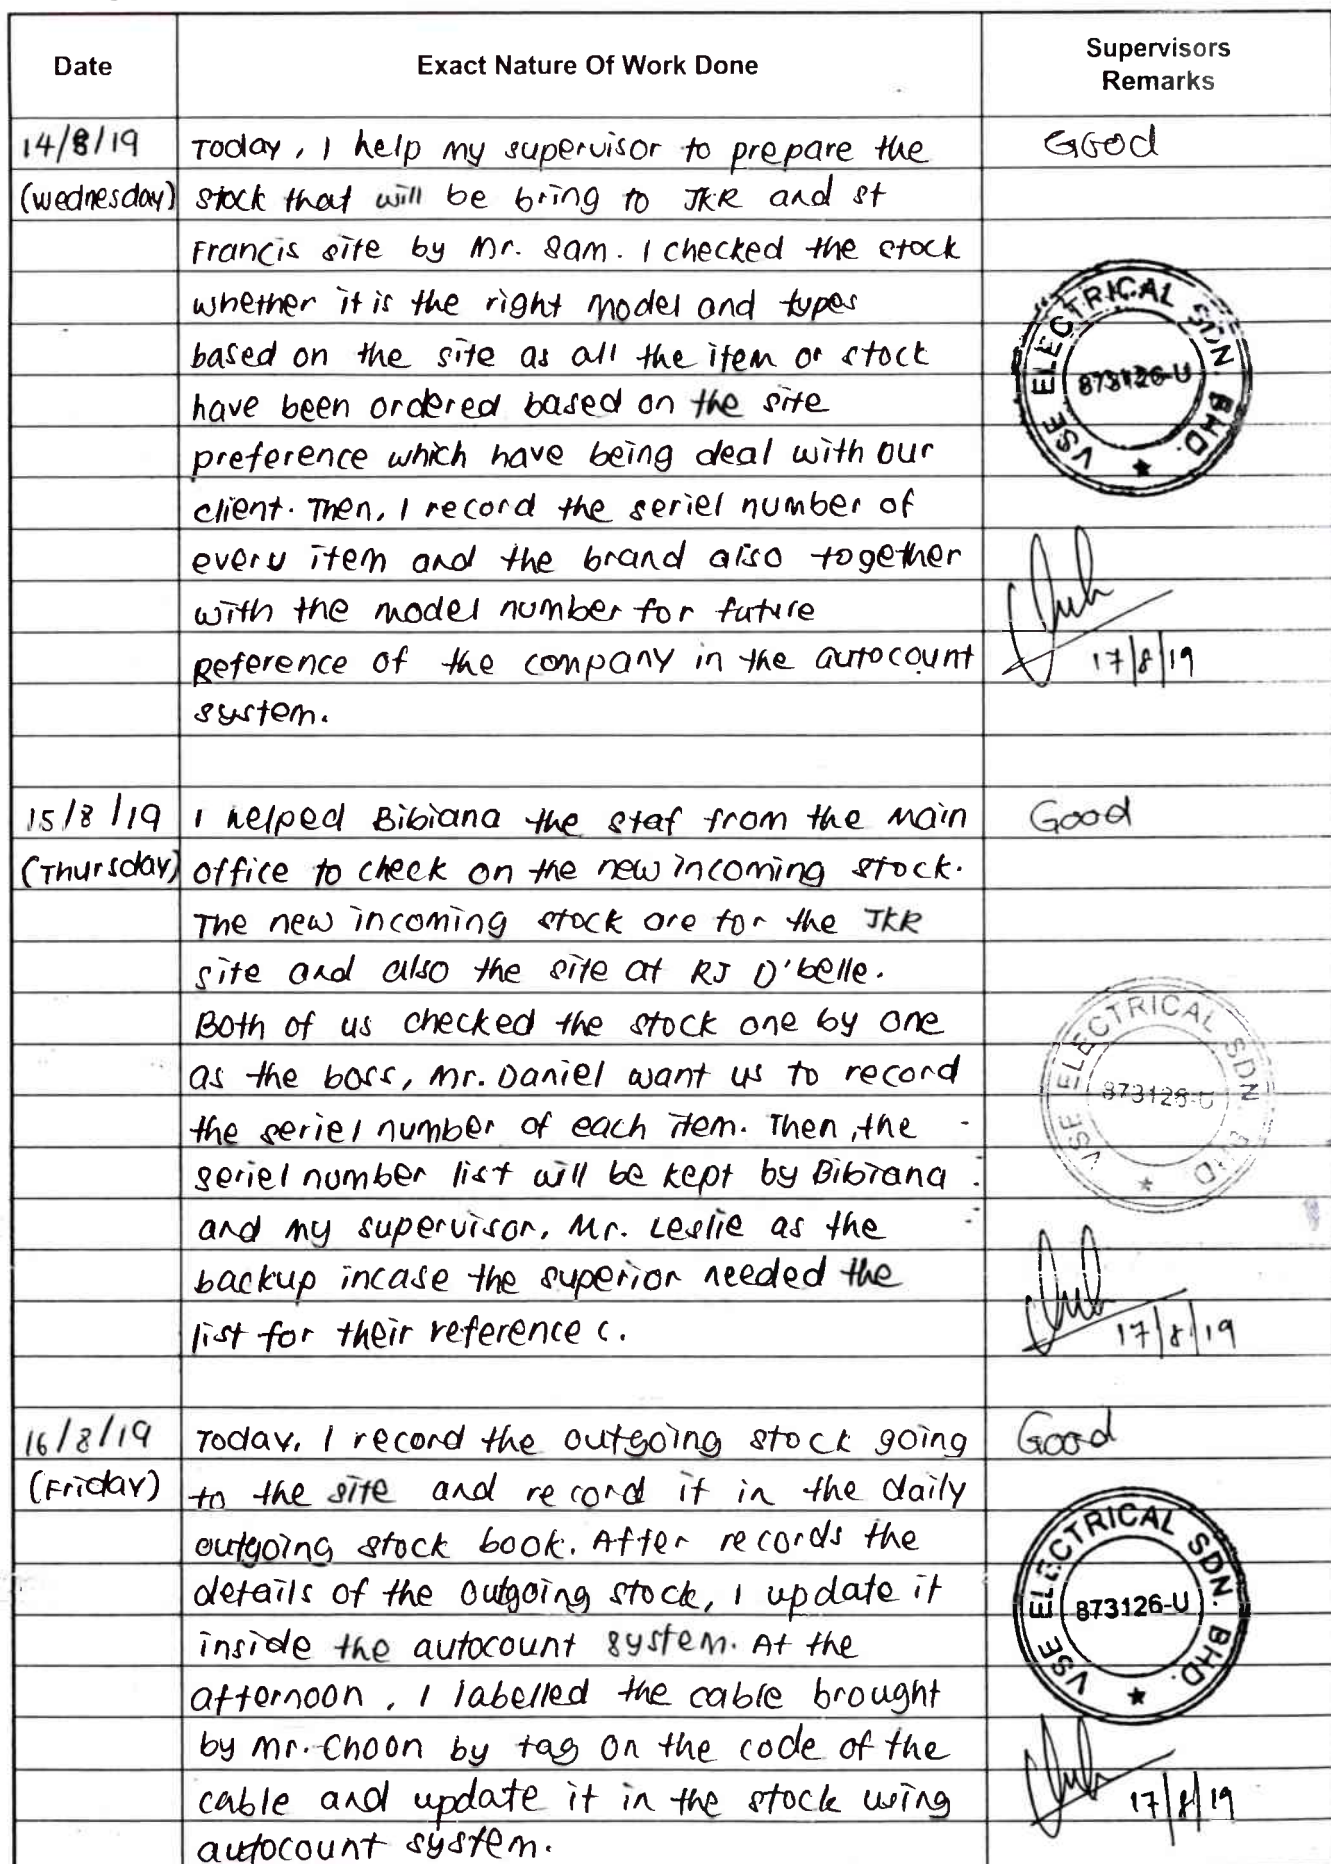 Date Exact Nature Of Work Done Supervisors
Remarks
14/8/19 Today, I help my supervisor to prepare the Good
(Wednesday) stock that will be bring to JKR and st
Francis site by Mr. Sam. I checked the stock
whether it is the right model and types
based on the site as all the item or stock
have been ordered based on the site
preference which have being deal with our
client. Then, I record the seriel number of
every item and the brand also together
with the model number for future
Reference of the company in the autocount
system.
VSE ELECTRICAL SDN. BHD.
873126-U
17/8/19
15/8/19 I helped Bibiana the staf from the main Good
(Thursday) office to check on the new incoming stock.
The new incoming stock are for the JKR
site and also the site at RJ D'belle.
Both of us checked the stock one by one
as the boss, Mr. Daniel want us to record
the seriel number of each item. Then, the
seriel number list will be kept by Bibiana
and my supervisor, Mr. Leslie as the
backup incase the superior needed the
list for their reference c.
VSE ELECTRICAL SDN. BHD.
873126-U
17/8/19
16/8/19 Today, I record the outgoing stock going Good
(Friday) to the site and record it in the daily
outgoing stock book. After records the
details of the outgoing stock, I update it
inside the autocount system. At the
afternoon, I labelled the cable brought
by Mr. Choon by tag on the code of the
cable and update it in the stock using
autocount system.
VSE ELECTRICAL SDN. BHD.
873126-U
17/8/19